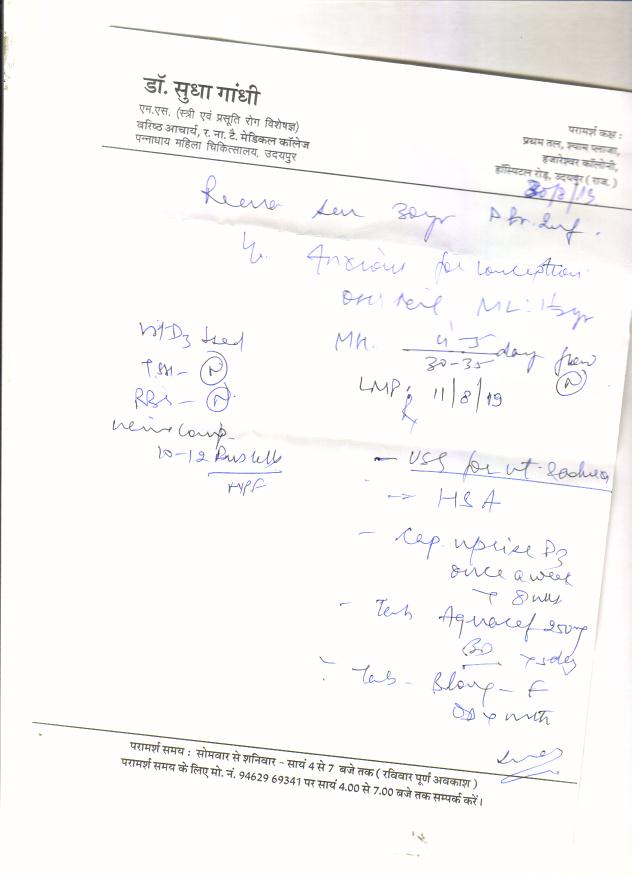 डॉ. सुधा गांधी
एम.एस. (स्त्री एवं प्रसूति रोग विशेषज्ञ)
वरिष्ठ आचार्य, र. ना. टै. मेडिकल कॉलेज
पन्नाधाय महिला चिकित्सालय, उदयपुर
परामर्श कक्ष :
प्रथम तल, श्याम प्लाजा,
हजारेश्वर कॉलोनी,
हॉस्पिटल रोड़, उदयपुर ( राज. )
Reena Sen 30yr
Anxious for conception
ML: 1½yr
MH. 4-5 day flow
30-35 (N)
LMP: 11/8/19
Vit D3
TSH - (N)
RBS - (N)
10-12 Pus cells
HPF
- USG for ut.
-> HSA
- Cap. uprise D3
once a week
x 8 wks
- Tab 250mg
BD x 5 days
Tab - - F
OD x mth
परामर्श समय : सोमवार से शनिवार - सायं 4 से 7 बजे तक ( रविवार पूर्ण अवकाश )
परामर्श समय के लिए मो. नं. 94629 69341 पर सायं 4.00 से 7.00 बजे तक सम्पर्क करें।